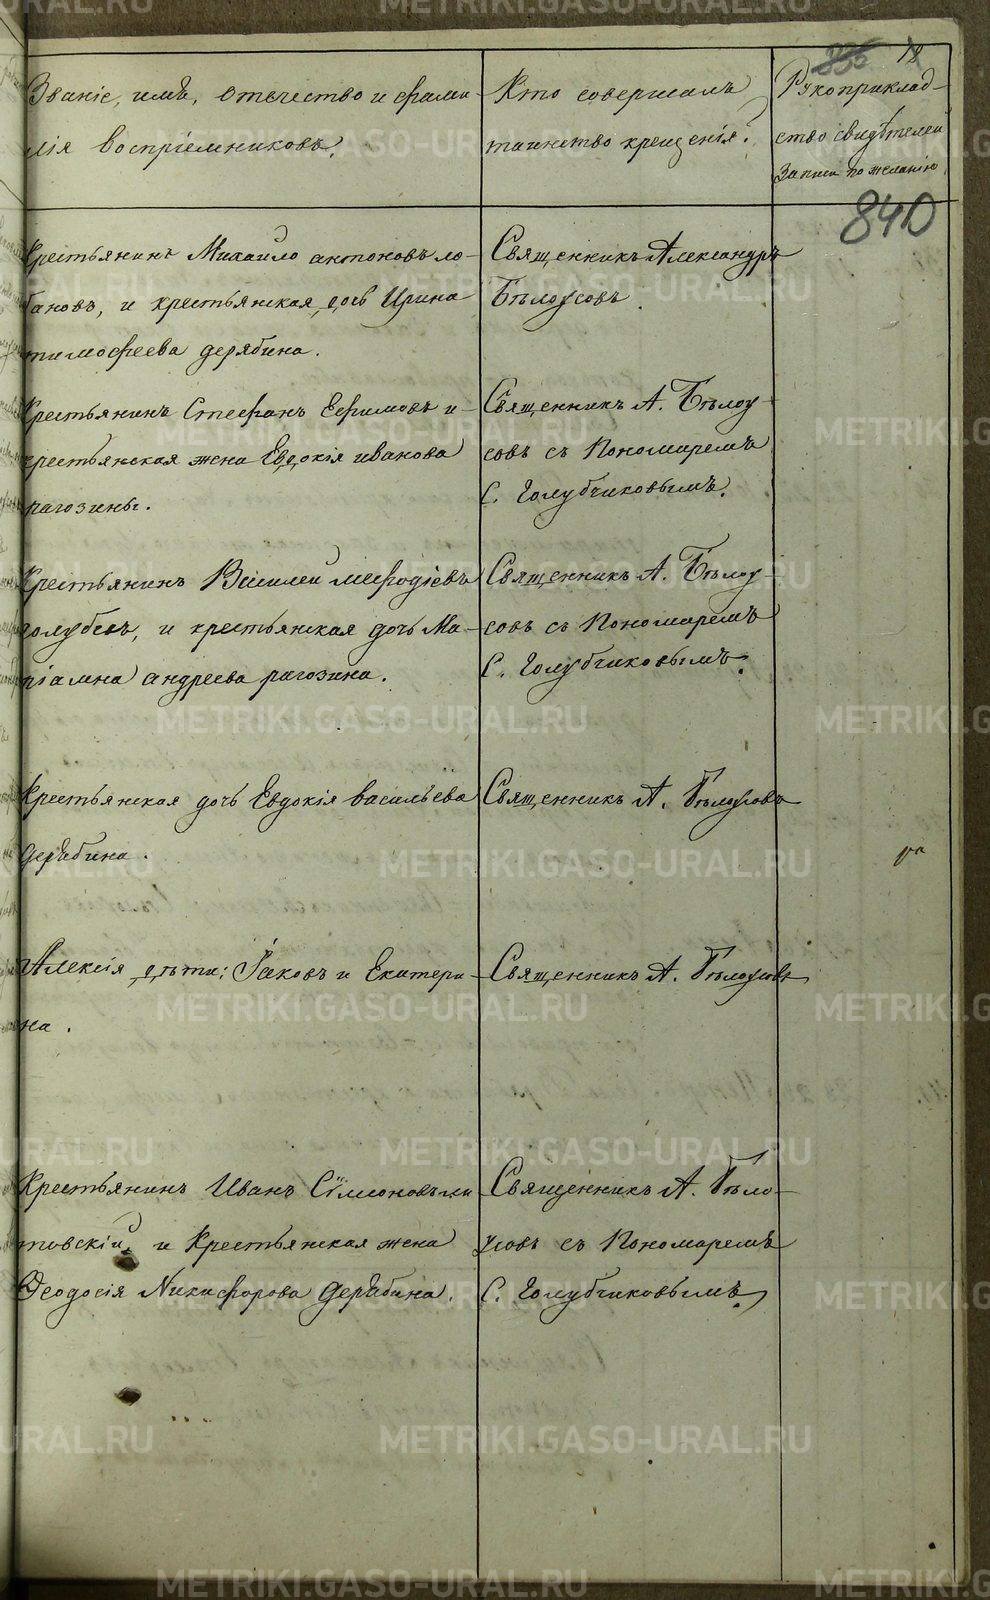 18
Званіе, имя, отечество и фами-
лія воспріемниковъ.
Кто совершалъ
таинство крещенія?
Рукоприклад-
ство свидѣтелей
записи по желанію
840
Крестьянинъ Михаило антоновъ ло-
бановъ, и крестьянская дочь Ирина
тимофеева дерябина.
Священникъ Александръ
Бѣлоусовъ.
Крестьянинъ Стефанъ Ефимовъ и
крестьянская жена Евдокія иванова
рагозины.
Священникъ А. Бѣлоу-
совъ съ Пономаремъ
С. Голубчиковымъ.
Крестьянинъ Василей мефодіевъ
голубевъ, и крестьянская дочь Ма-
ріамна андреева рагозина.
Священникъ А. Бѣлоу-
совъ съ Пономаремъ
С. Голубчиковымъ.
Крестьянская дочь Евдокія васильева
дерябина.
Священникъ А. Бѣлоусовъ
Алексія дѣти: Іаковъ и Екатери-
на.
Священникъ А. Бѣлоусовъ
Крестьянинъ Иванъ Сѵмеоновъ
товскій, и Крестьянская жена
Феодосія Никифорова Дерябина.
Священникъ А. Бѣло-
усовъ съ Пономаремъ
С. Голубчиковымъ.
METRIKI.GASO-URAL.RU